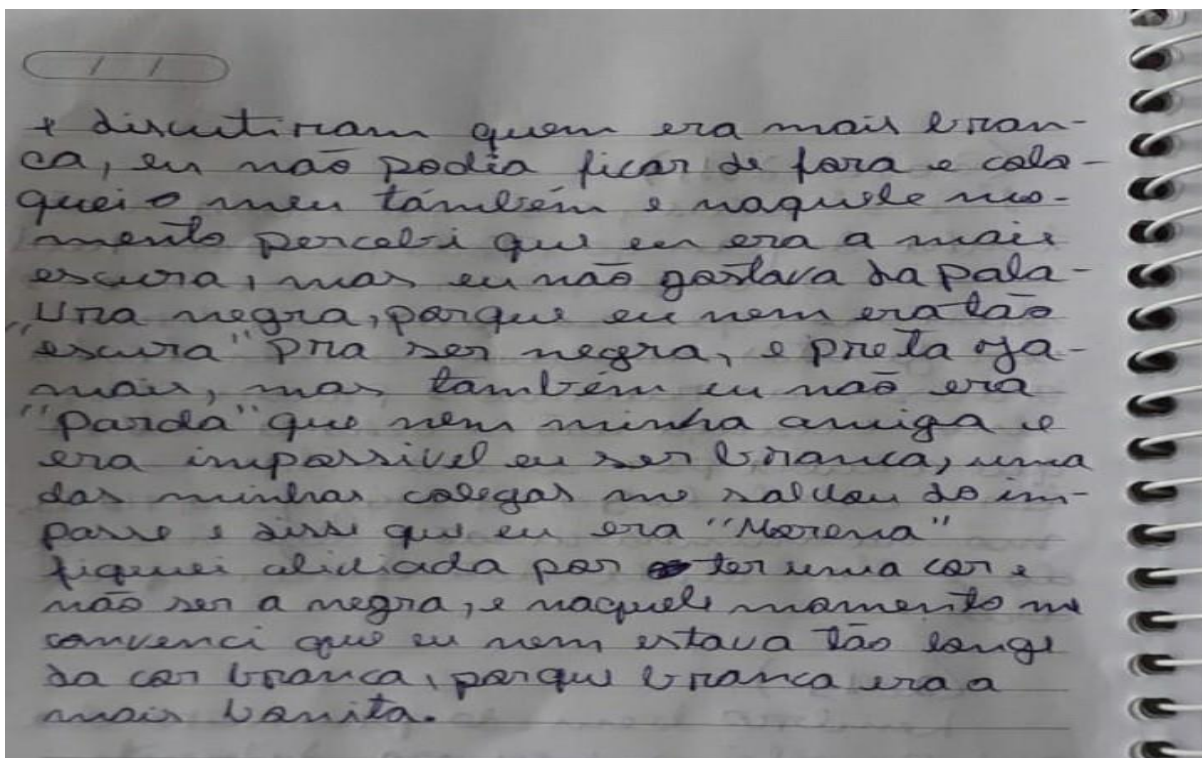 / /
e discutiram quem era mais bran-
ca, eu não podia ficar de fora e colo-
quei o meu também e naquele mo-
mento percebi que eu era a mais
escura, mas eu não gostava da pala-
vra negra, porque eu nem era tão
"escura" pra ser negra, e preta ja-
mais, mas também eu não era
"parda" que nem minha amiga e
era impossivel eu ser branca, uma
das minhas colegas me salvou do im-
passe e disse que eu era "Morena"
fiquei aliviada por ter uma cor e
não ser a negra, e naquele momento me
convenci que eu nem estava tão longe
da cor branca, porque branca era a
mais bonita.